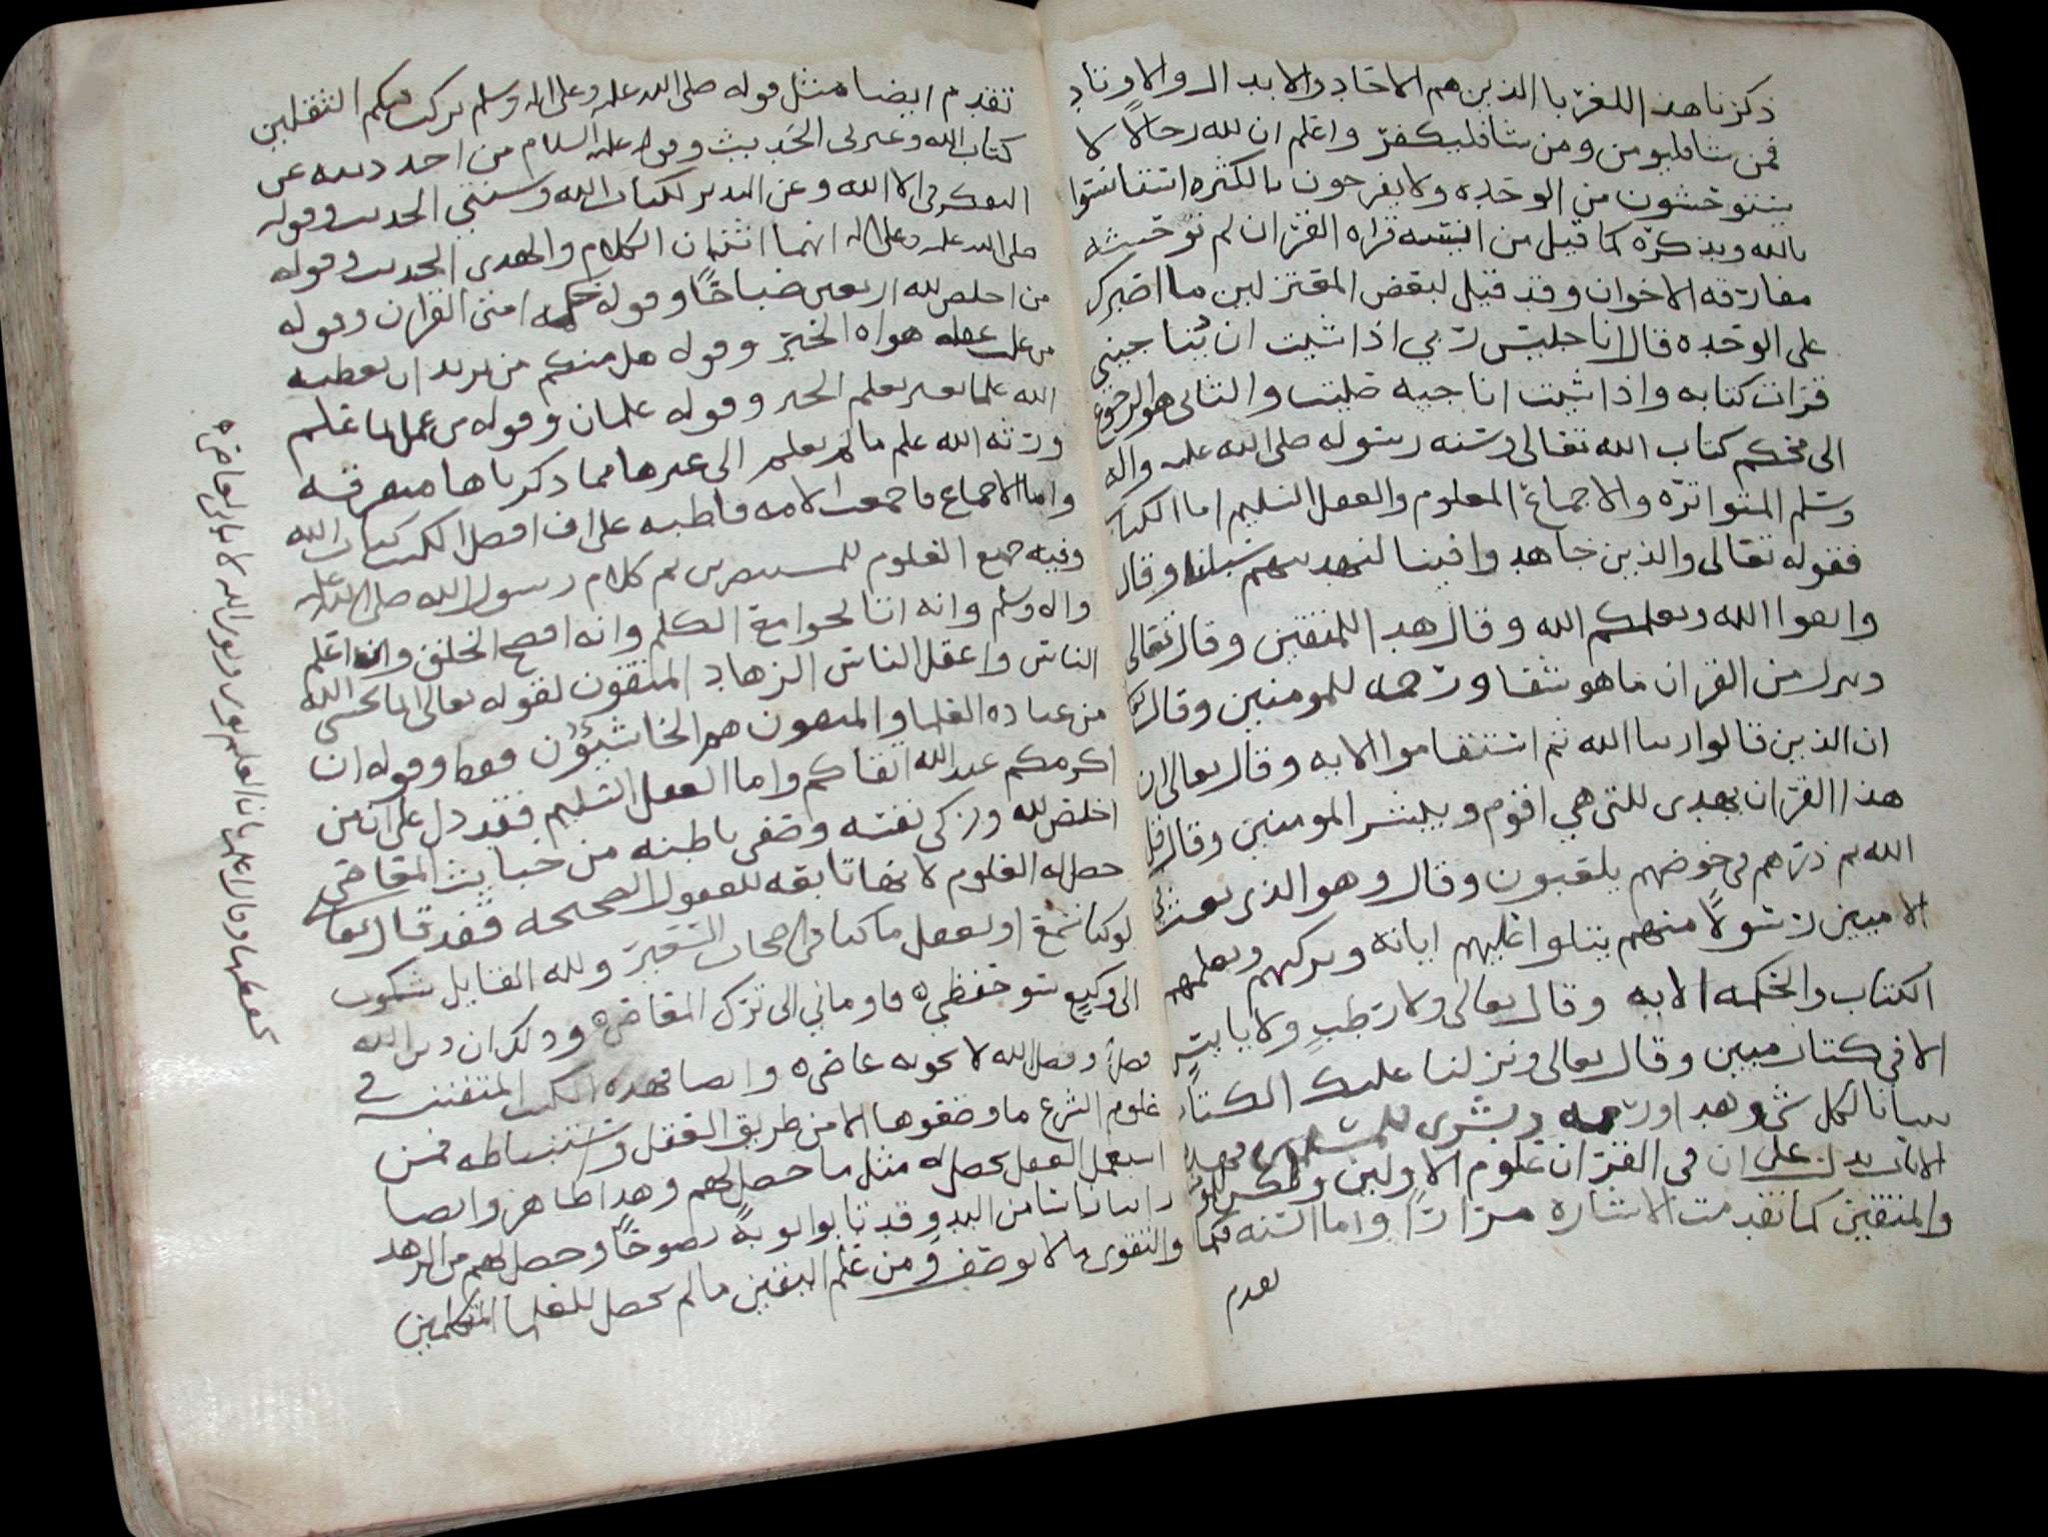 ذكرنا هذا للغربا الذين هم الاحاد والابدال والاوتاد
فمن شا فليومن ومن شا فليكفر واعلم ان لله رجالا لا
يستوحشون من الوحده ولا يفرحون بالكثره استانسوا
بالله وبذكره كما قيل من انيسه قراه القران لم توحشه
مفارقه الاخوان وقد قيل لبعض المعتزلين ما اصبرك
على الوحده قال انا جليس ربي اذا شيت ان يناجيني
قرات كتابه واذا شيت اناجيه صليت والثاني هو الرجوع
الى محكم كتاب الله تعالى وسنه رسوله صلى الله عليه واله
وسلم المتواتره والاجماع المعلوم والعقل السليم اما الكتاب
فقوله تعالى والذين جاهدوا فينا لنهدينهم سبلنا وقال
واتقوا الله ويعلمكم الله وقال هدا للمتقين وقال تعالى
وننزل من القران ما هو شفا ورحمه للمومنين وقال
ان الذين قالوا ربنا الله ثم استقاموا الايه وقال تعالى ان
هذا القران يهدى للتى هي اقوم ويبشر المومنين وقال قل
الله ثم ذرهم في خوضهم يلعبون وقال وهو الذى بعث في
الاميين رسولا منهم يتلوا عليهم اياته ويزكيهم ويعلمهم
الكتاب والحكمه الايه وقال تعالى ولا رطب ولا يابس
الا في كتاب مبين وقال تعالى ونزلنا عليك الكتاب
تبيانا لكل شي وهدا ورحمه وبشرى للمسلمين فهذه
الايات تدل على ان في القران علوم الاولين والاخرين
والمتقين كما تقدمت الاشاره مرارا واما السنه فكما
تقدم
تقدم ايضا مثل قوله صلى الله عليه وعلى اله وسلم تركت فيكم الثقلين
كتاب الله وعترتى الحديث وقوله عليه السلام من اخذ دينه عن
التفكر في الا الله وعن التدبر لكتاب الله وسنتي الحديث وقوله
صلى الله عليه وعلى اله انهما اثنان الكلام والهدى الحديث وقوله
من اخلص لله اربعين صباحا وقوله امتى القران وقوله
من غلب عقله هواه الخبر وقوله هل منكم من يريد ان يعطيه
الله علما بغير تعلم الخبر وقوله علمان وقوله من عمل بما علم
ورثه الله علم ما لم يعلم الى غيرها مما ذكرناها متفرقه
واما الاجماع فاجمعت الامه قاطبه على ان افضل الكتب كتاب الله
وفيه جميع العلوم للمستبصرين ثم كلام رسول الله صلى الله عليه
واله وسلم وانه اتا بجوامع الكلم وانه افصح الخلق وان اعلم
الناس واعقل الناس الزهاد المتقون لقوله تعالى انما يخشى الله
من عباده العلما والمتقون هم الخاشيون فقط وقوله ان
اكرمكم عند الله اتقاكم واما العقل السليم فقد دل على ان من
اخلص لله وزكى نفسه وصفى باطنه من خبايث المعاصي
حصل له العلوم لانها تابعه للعقول الصحيحه فقد قال تعالى
لو كنا نسمع او نعقل ما كنا في اصحاب السعير ولله القايل شكوت
الى وكيع سو حفظي فاوماني الى ترك المعاصي وذلك ان دين الله
فضل وفضل الله لا يحويه عاصي وايضا فهذه الكتب المتفننه في
علوم الشرع ما وضعوها الا من طريق العقل واستنباطه فمن
استعمل العقل يحصل له مثل ما حصل لهم وهذا ظاهر وايضا
راينا ناسا من البدو قد تابوا توبه نصوحا وحصل لهم من الزهد
والتقوى ما لا يوصف ومن علم اليقين ما لم يحصل للعلما المتكلمين